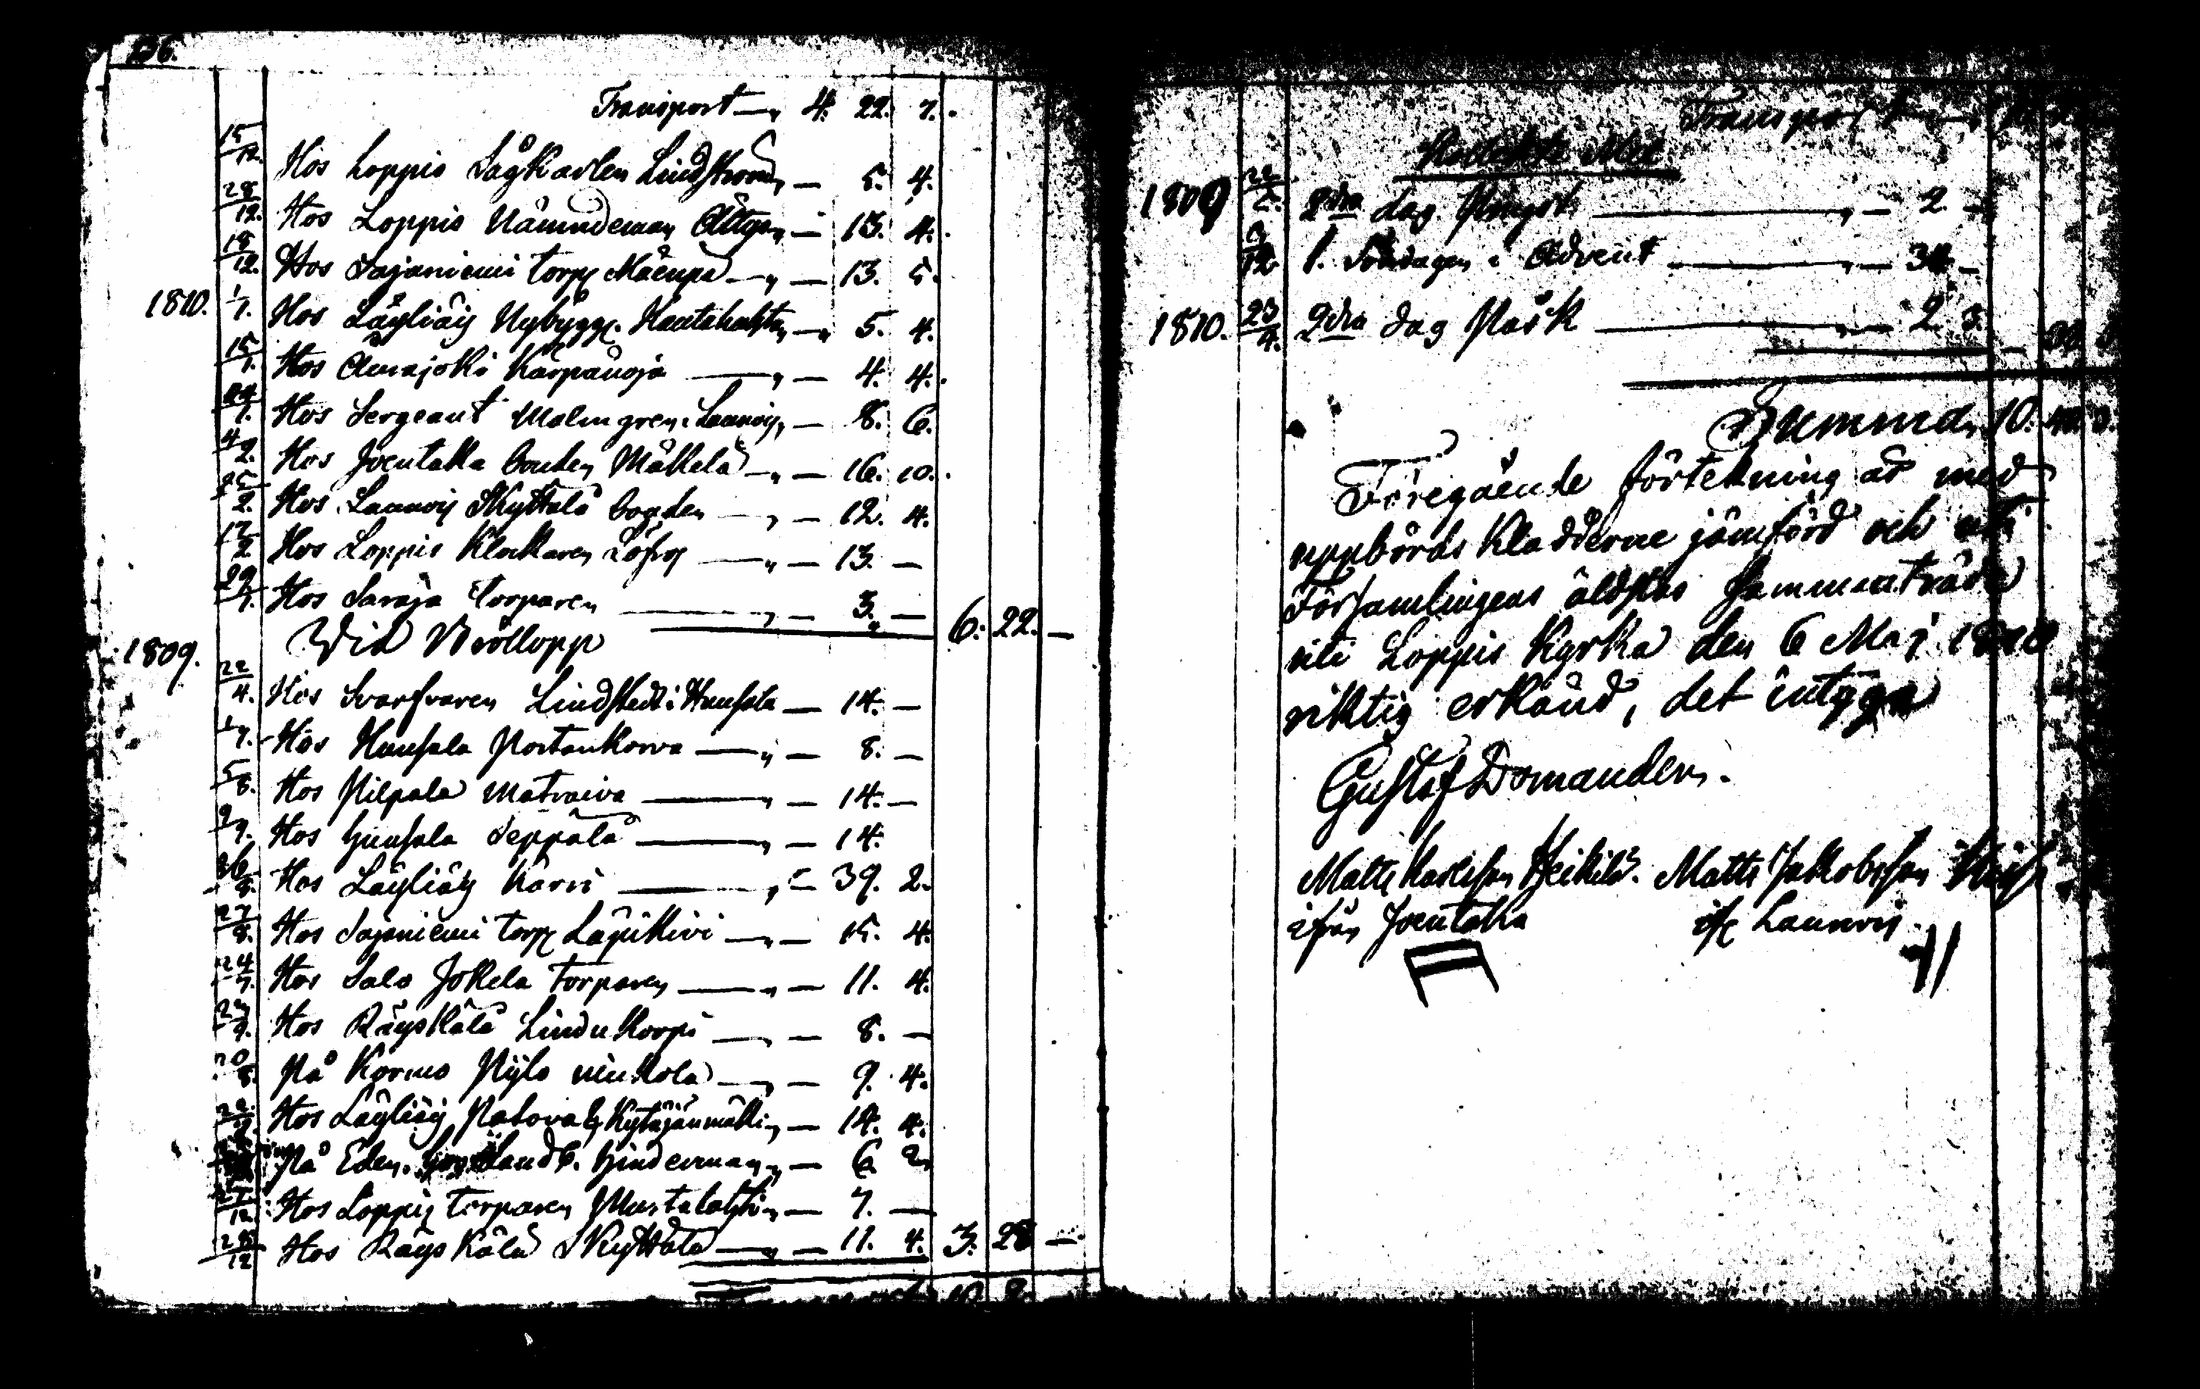 136.
Transport — 4. 22. 7.
15/12. Hos Loppis Sågkarlen Lindström — 5. 4.
28/12. Hos Loppis Nämndeman — 13. 4.
18/12. Hos Sajaniemi torp. Mäenpä — 13. 5.
1810. 1/1. Hos Läyliäis Nybygg. — 5. 4.
15/1. Hos Kärpänoja — 4. 4.
Hos Sergeant Malmgren i Launois — 8. 6.
4/2. Hos Joentaka bonden Mäkelä — 16. 10.
25/2. Hos Launois Skyttälä bonden — 12. 4.
Hos Loppis Klockaren — 13. —
Hos Saraja Torparen — 3. — 6. 22. —
1809. Vid Bröllopp
22/4. Hos Svarfvaren Lindstedt i Hunsala — 14. —
Hos Hunsala Portankorva — 8. —
5/8. Hos Pilpala Matraiva — 14. —
Hos Hunsala Seppälä — 14.
Hos Läyliäis Kärri — 39. 2.
27/8. Hos Sajaniemi torp. Läpikivi — 15. 4.
24/9. Hos Salo Jokela torparen — 11. 4.
Hos Räyskälä Lindukorpi — 8. —
På Kormo Pylö — 9. 4.
Hos Läyliäis Kytäjänmäki — 14. 4.
På — 6 2
Hos Loppis torparen Mustalahti — 7. —
Hos Räyskälä Skyttälä — 11. 4. 3. 28 —
Transport
Kollekte Mel
1809 2dra dag Pingst — 2 —
1. Söndagen i Advent —
1810. 23/4. 2dra dag Påsk — 2 3.
Summa 10.
Föregående förtekning är med
uppbörds Kladderne jämförd och uti
Församlingens äldstas sammanträde
uti Loppis Kyrka den 6 Maj 1810
riktig erkänd, det intyga
Gustaf Domander.
Matts Karlsson Heikilä. Matts Jakobsson
ifrån Joentaka if. Launois.